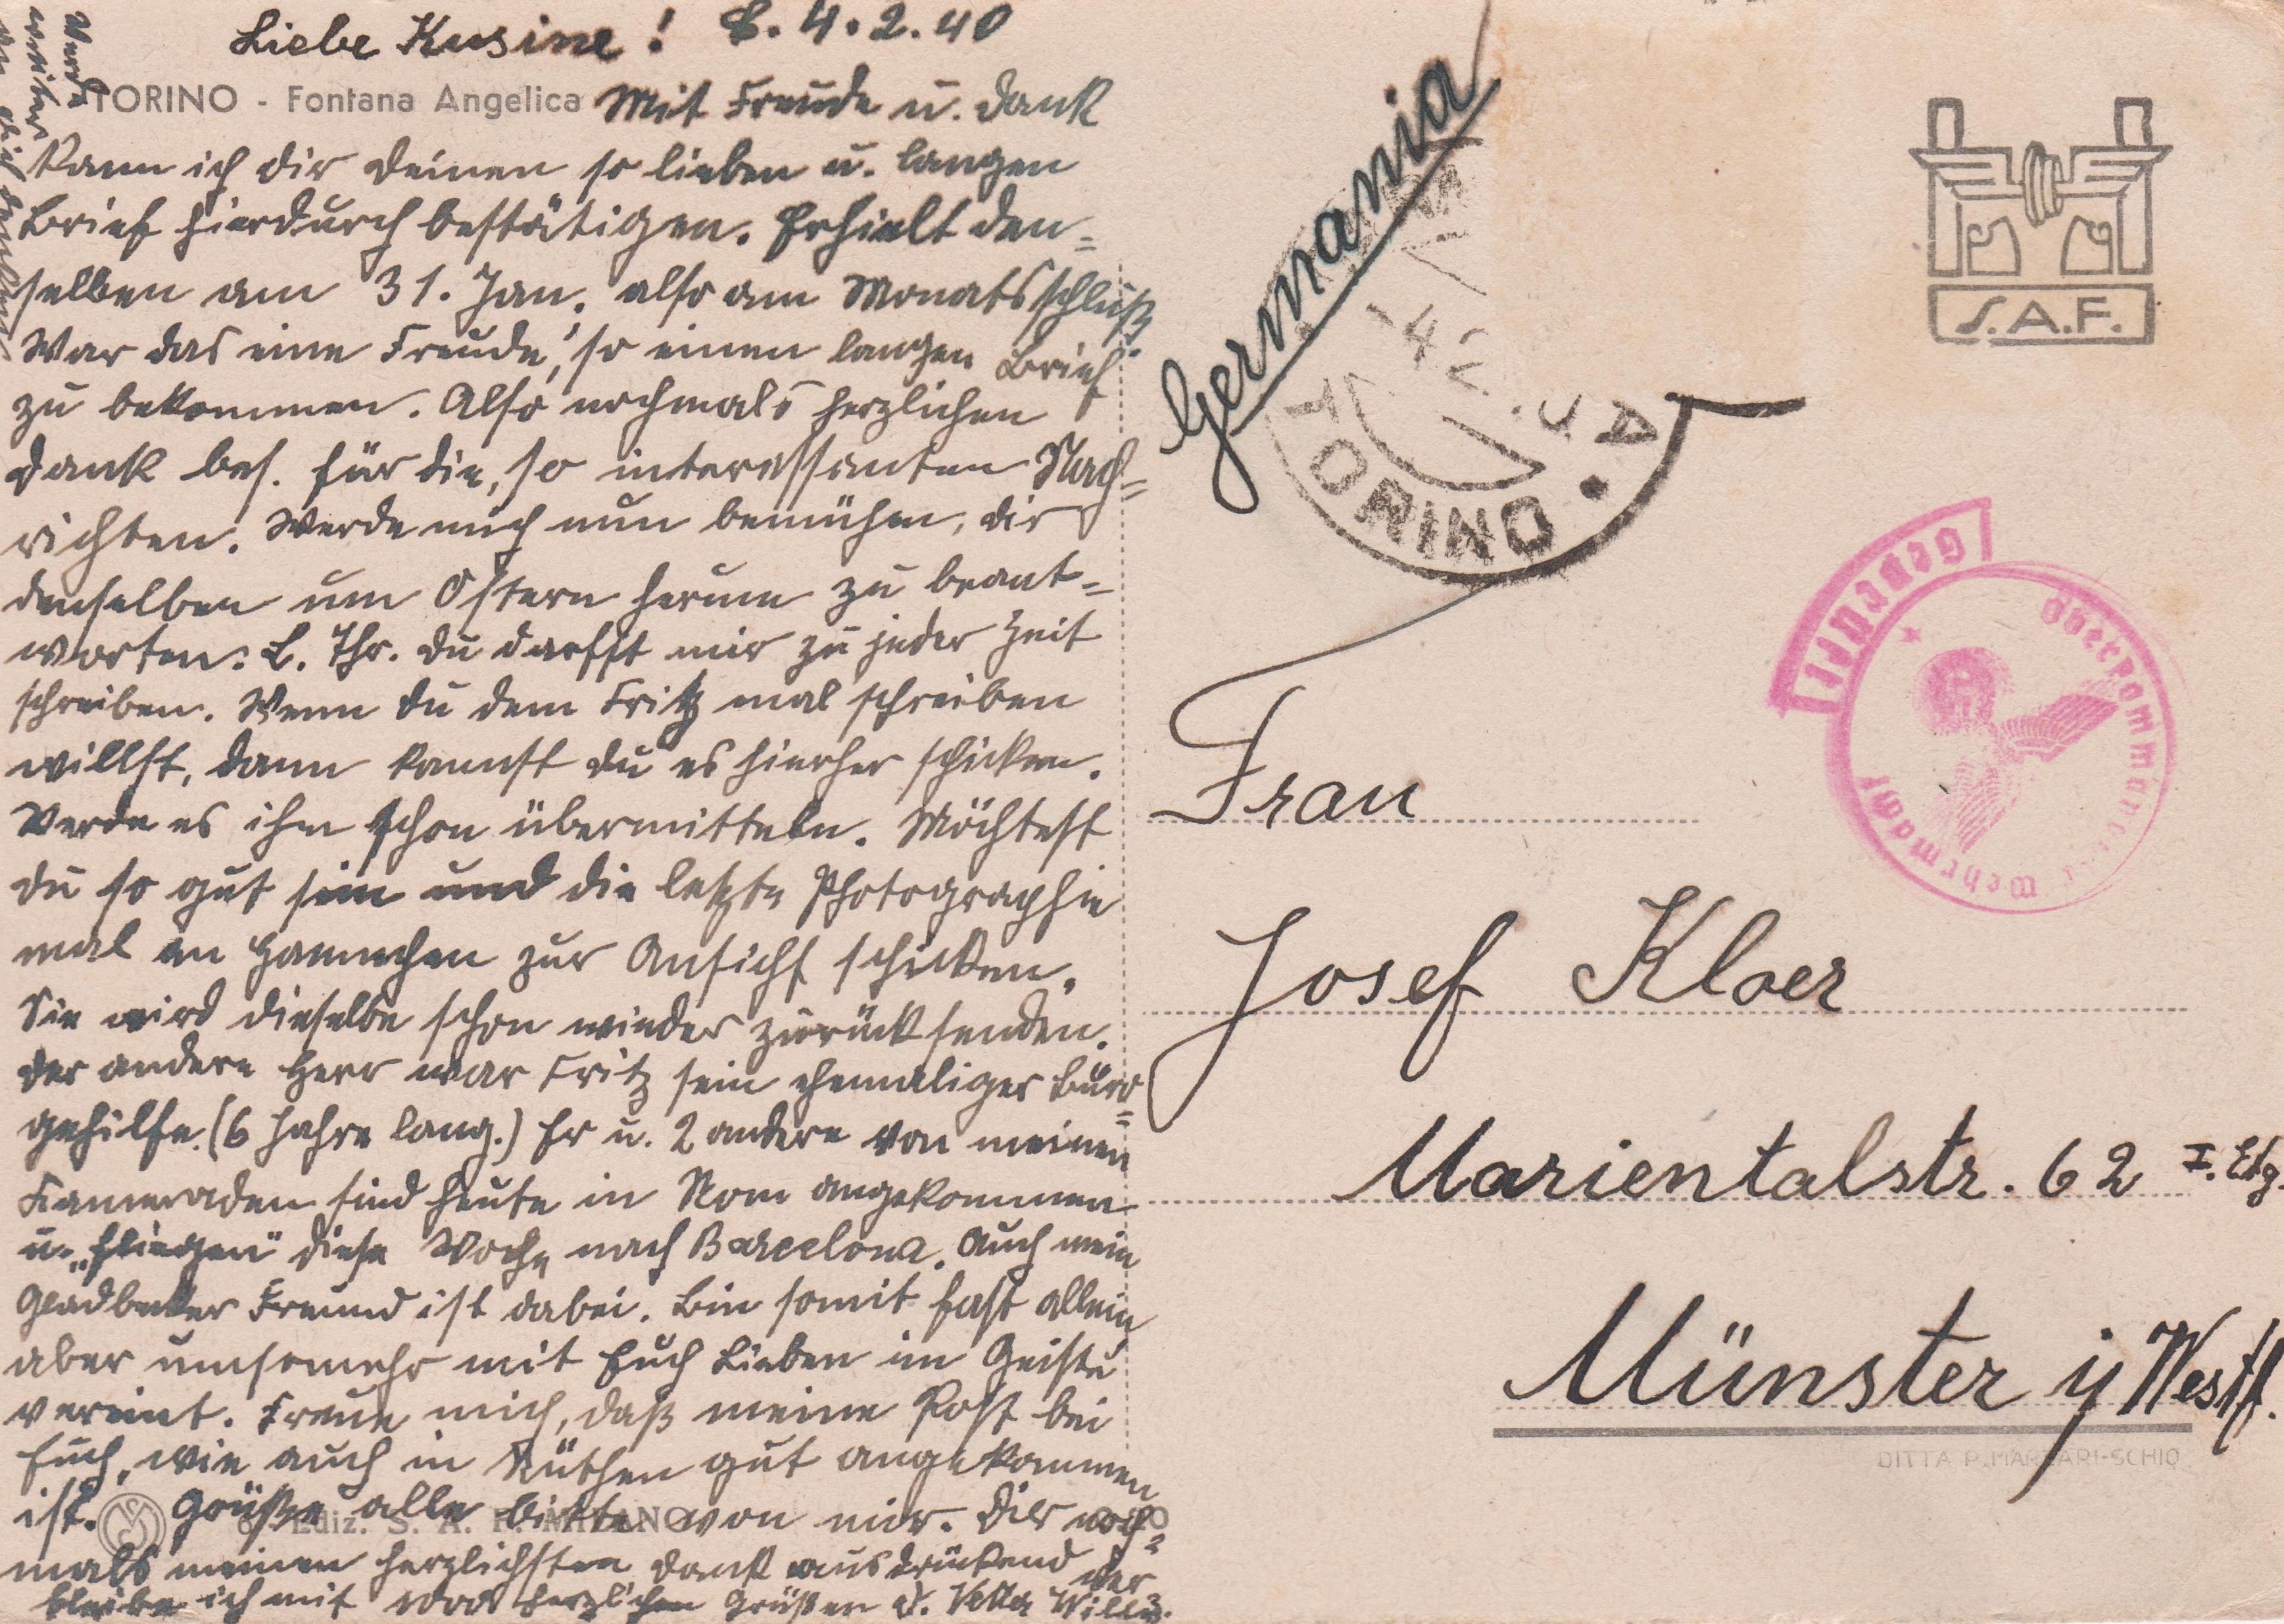 Liebe Kusine! E. 4.2.40
TORINO - Fontana Angelica
Mit Freude u. Dank
kann ich dir deinen so lieben u. langen
Brief hierdurch bestätigen. Erhielt den=
selben am 31. Jan. also am Monatsschluß.
War das eine Freude, so einen langen Brief
zu bekommen. Also nochmals herzlichen
Dank bes. für die, so interessanten Nach=
richten. Werde mich nun bemühen, dir
denselben um Ostern herum zu beant=
worten. L. Thr. du darfst mir zu jeder Zeit
schreiben. Wenn du dem Fritz mal schreiben
willst, dann kannst du es hierher schicken.
Werde es ihm schon übermitteln. Möchtest
du so gut sein und die letzte Photographie
mal an Hannchen zur Ansicht schicken.
Sie wird dieselbe schon wieder zurücksenden.
Der andere Herr war Fritz sein ehemaliger Büro=
gehilfe. (6 Jahre lang.) Er u. 2 andere von meinen
Kameraden sind heute in Rom angekommen
u. „fliegen" diese Woche nach Barcelona. Auch mein
Gladbecker Freund ist dabei. Bin somit fast allein
aber umsomehr mit Euch Lieben im Geiste
vereint. Freue mich, daß meine Post bei
Euch, wie auch in Rüthen gut angekommen
ist. Grüße alle bitte von mir. Dir noch=
mals meinen herzlichsten Dank ausdrückend ver
bleibe ich mit herzlichen Grüßen d. Vetter Willy.
Ediz. S. A. F. MILANO
Werde
weiter
Germania
TORINO
S.A.F.
Geprüft
Oberkommando der Wehrmacht
Frau
Josef Kloer
Marientalstr. 62 I. Etg.
Münster i/Westf.
DITTA P. MARZARI-SCHIO